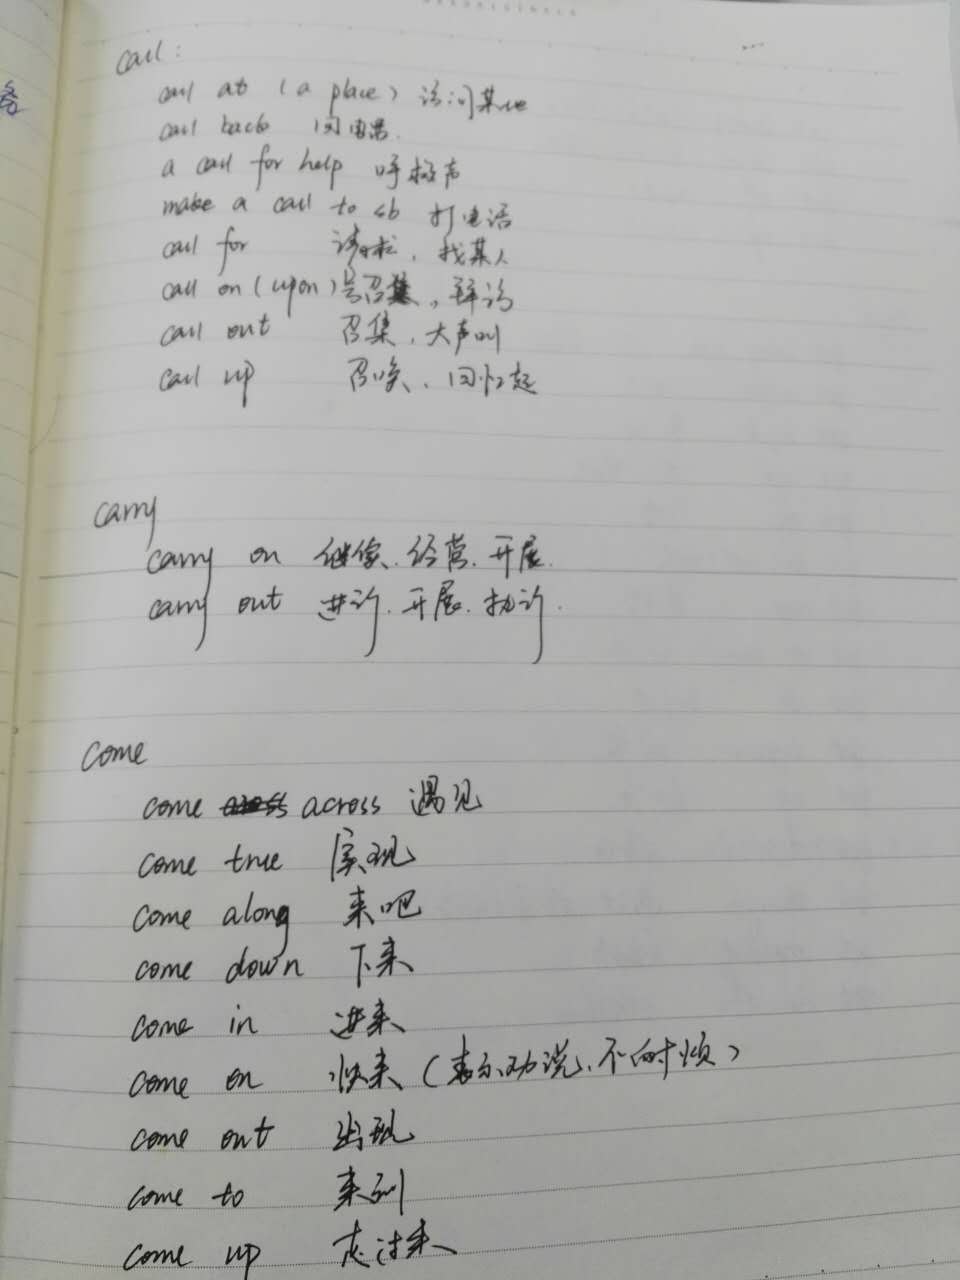 call:
call at (a place) 访问某地
call back 回电话.
a call for help 呼救声
make a call to sb 打电话
call for 请求, 找某人
call on (upon) 号召, 拜访
call out 召集, 大声叫
call up 召唤, 回忆起
carry
carry on 继续. 经营. 开展.
carry out 进行. 开展. 执行.
come
come across 遇见
come true 实现
come along 来吧
come down 下来
come in 进来
come on 快来 (表示劝说, 不耐烦)
come out 出现
come to 来到
come up 走过来